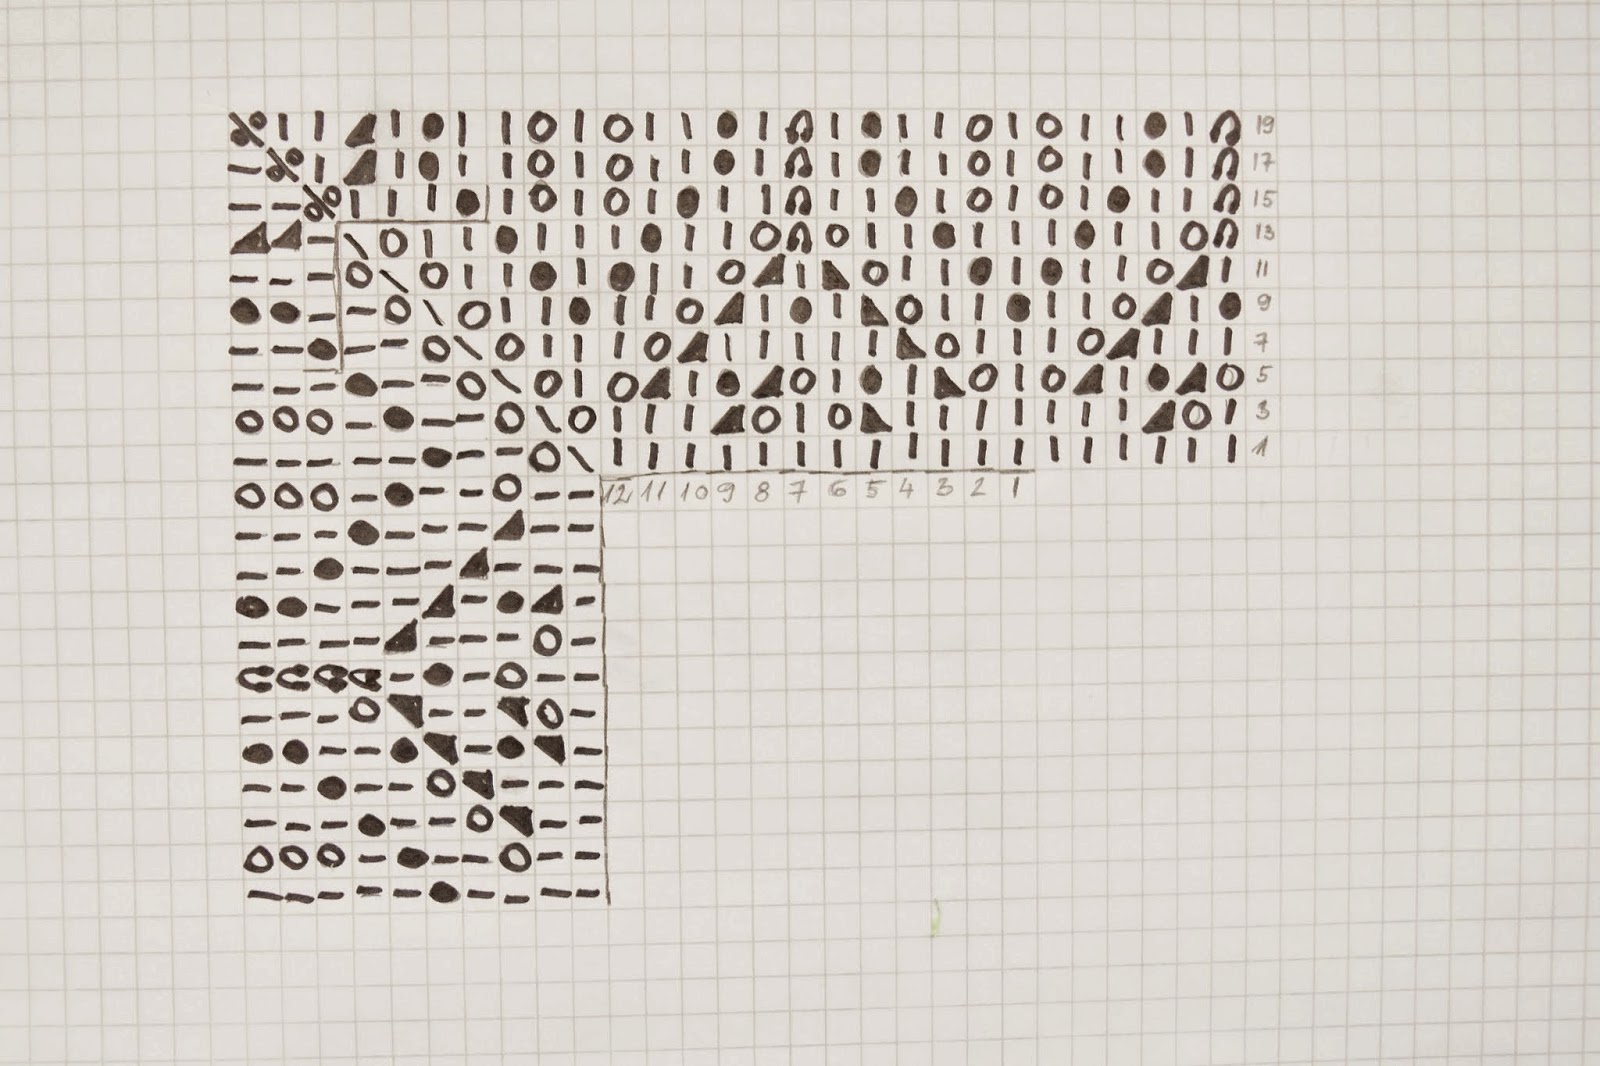 19
17
15
13
11
9
7
5
3
1
12 11 10 9 8 7 6 5 4 3 2 1